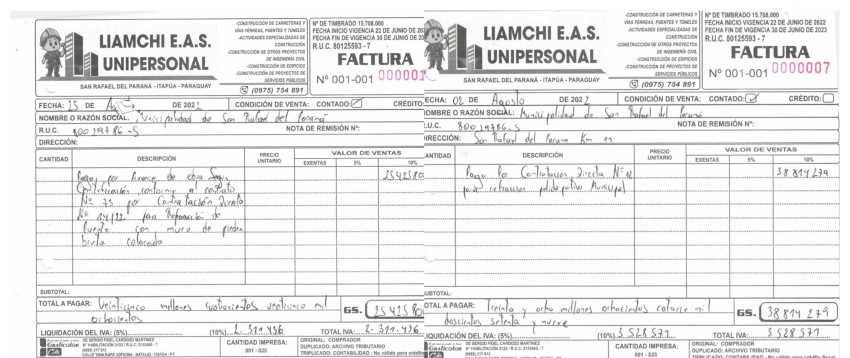 LIAMCHI E.A.S.
UNIPERSONAL
-CONSTRUCCIÓN DE CARRETERAS Y
VÍAS FÉRREAS, PUENTES Y TÚNELES
-ACTIVIDADES ESPECIALIZADAS DE
CONSTRUCCIÓN
-CONSTRUCCIÓN DE OTROS PROYECTOS
DE INGENIERÍA CIVIL
-CONSTRUCCIÓN DE EDIFICIOS
-CONSTRUCCIÓN DE PROYECTOS DE
SERVICIOS PÚBLICOS
SAN RAFAEL DEL PARANÁ - ITAPÚA - PARAGUAY
(0975) 754 891
Nº DE TIMBRADO 15.708.000
FECHA INICIO VIGENCIA 22 DE JUNIO DE 202
FECHA FIN DE VIGENCIA 30 DE JUNIO DE 20
R.U.C. 80125593 - 7
FACTURA
Nº 001-001
FECHA: DE DE 202 CONDICIÓN DE VENTA: CONTADO: CRÉDITO
NOMBRE O RAZÓN SOCIAL: Municipalidad de San Rafael del Paraná
R.U.C. 80019786-5 NOTA DE REMISIÓN Nº:
DIRECCIÓN:
CANTIDAD DESCRIPCIÓN PRECIO UNITARIO VALOR DE VENTAS
EXENTAS 5% 10%
Pago por Avance de obra
conforme al contrato
Nº 73 por Contratación Directa
Nº 14/22 para Reparación de
Puente con muro de piedra
bruta colocada
SUBTOTAL:
TOTAL A PAGAR: Veinticinco millones cuatrocientos veinticinco mil
ochocientos
GS. 25 425 80
LIQUIDACIÓN DEL IVA: (5%) (10%) 2.311.436 TOTAL IVA: 2.311.436
DE SERGIO FIDEL CARDOZO MARTINEZ
CANTIDAD IMPRESA:
001 - 025
ORIGINAL: COMPRADOR
DUPLICADO: ARCHIVO TRIBUTARIO
TRIPLICADO: CONTABILIDAD - No válido para crédito
LIAMCHI E.A.S.
UNIPERSONAL
-CONSTRUCCIÓN DE CARRETERAS Y
VÍAS FÉRREAS, PUENTES Y TÚNELES
-ACTIVIDADES ESPECIALIZADAS DE
CONSTRUCCIÓN
-CONSTRUCCIÓN DE OTROS PROYECTOS
DE INGENIERÍA CIVIL
-CONSTRUCCIÓN DE EDIFICIOS
-CONSTRUCCIÓN DE PROYECTOS DE
SERVICIOS PÚBLICOS
SAN RAFAEL DEL PARANÁ - ITAPÚA - PARAGUAY
(0975) 754 891
Nº DE TIMBRADO 15.708.000
FECHA INICIO VIGENCIA 22 DE JUNIO DE 2022
FECHA FIN DE VIGENCIA 30 DE JUNIO DE 2023
R.U.C. 80125593 - 7
FACTURA
Nº 001-001 0000007
ECHA: 02 DE Agosto DE 2022 CONDICIÓN DE VENTA: CONTADO: CRÉDITO:
OMBRE O RAZÓN SOCIAL: Municipalidad de San Rafael del Paraná
.U.C. 80019786-5 NOTA DE REMISIÓN Nº:
IRECCIÓN: San Rafael del Parana Km
ANTIDAD DESCRIPCIÓN PRECIO UNITARIO VALOR DE VENTAS
EXENTAS 5% 10%
Pago por Contratacion Directa 38 814 279
para refraccion polideportivo Municipal
UBTOTAL:
OTAL A PAGAR: Treinta y ocho millones ochocientos catorce mil
doscientos setenta y nueve
GS. 38 814 279
IQUIDACIÓN DEL IVA: (5%) (10%) 3.528.571 TOTAL IVA: 3 528 571
DE SERGIO FIDEL CARDOZO MARTINEZ
CANTIDAD IMPRESA:
001 - 025
ORIGINAL: COMPRADOR
DUPLICADO: ARCHIVO TRIBUTARIO